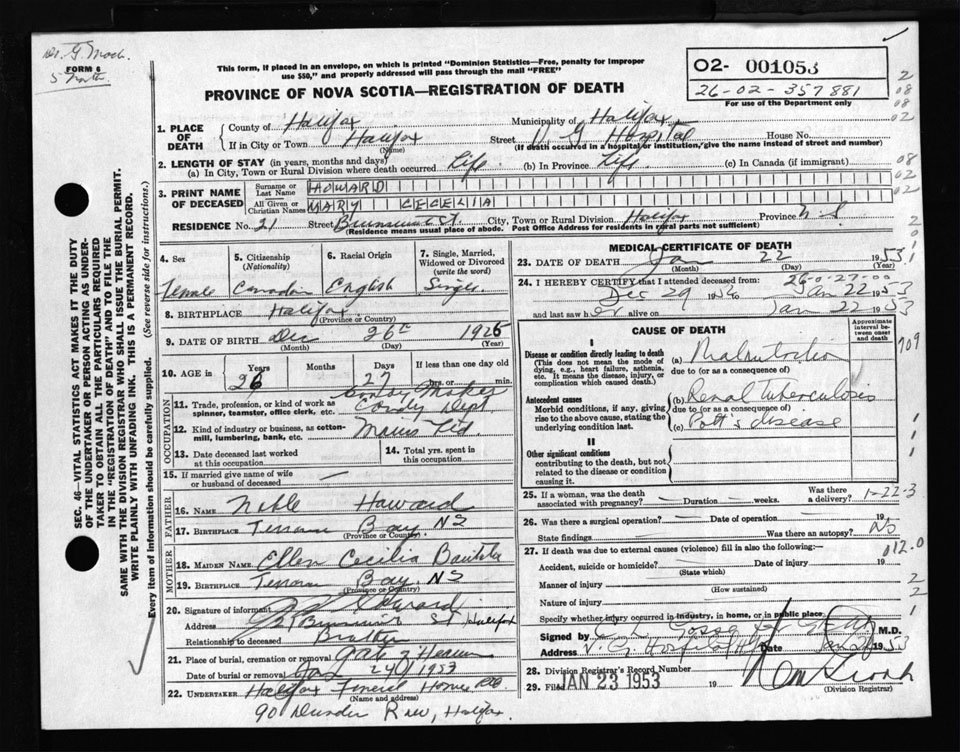 Dr. G.
FORM 6
5 North.
This form, if placed in an envelope, on which is printed "Dominion Statistics—Free, penalty for improper
use $50," and properly addressed will pass through the mail "FREE"
PROVINCE OF NOVA SCOTIA—REGISTRATION OF DEATH
O2- 001053
26-02-357881
For use of the Department only
2
08
08
02
1. PLACE OF DEATH
County of Halifax Municipality of Halifax
If in City or Town Halifax Street V. G. Hospital House No.
(Name) (If death occurred in a hospital or institution, give the name instead of street and number)
2. LENGTH OF STAY (in years, months and days)
(a) In City, Town or Rural Division where death occurred Life. (b) In Province Life. (c) In Canada (if immigrant)
08
02
02
3. PRINT NAME OF DECEASED
Surname or Last Name HOWARD
All Given or Christian Names MARY CECELIA
RESIDENCE No. 21 Street Brunswick St. City, Town or Rural Division Halifax Province N-S
(Residence means usual place of abode. Post Office Address for residents in rural parts not sufficient)
SEC. 46—VITAL STATISTICS ACT MAKES IT THE DUTY
OF THE UNDERTAKER OR PERSON ACTING AS UNDER-
TAKER TO OBTAIN ALL THE PARTICULARS REQUIRED
IN THE "REGISTRATION OF DEATH" AND TO FILE THE
SAME WITH THE DIVISION REGISTRAR WHO SHALL ISSUE THE BURIAL PERMIT.
WRITE PLAINLY WITH UNFADING INK. THIS IS A PERMANENT RECORD.
Every item of information should be carefully supplied. (See reverse side for instructions.)
4. Sex
Female
5. Citizenship
(Nationality)
Canadian
6. Racial Origin
English
7. Single, Married, Widowed or Divorced
(write the word)
Single
8. BIRTHPLACE Halifax
(Province or Country)
9. DATE OF BIRTH Dec 26 1926
(Month) (Day) (Year)
10. AGE in Years Months Days If less than one day old
26 27 hrs. or min.
OCCUPATION
11. Trade, profession, or kind of work as
spinner, teamster, office clerk, etc.
Candy Maker
Candy Dept
12. Kind of industry or business, as cotton-
mill, lumbering, bank, etc.
Moirs Ltd.
13. Date deceased last worked
at this occupation
14. Total yrs. spent in
this occupation
15. If married give name of wife
or husband of deceased
FATHER
16. NAME Noble Howard
17. BIRTHPLACE Bay, NS
(Province or Country)
MOTHER
18. MAIDEN NAME Ellen Cecilia
19. BIRTHPLACE Bay. NS
(Province or Country)
20. Signature of informant Howard
Address 21 Brunswick St Halifax
Relationship to deceased Brother
21. Place of burial, cremation or removal Gate of Heaven
Date of burial or removal Jan 24 1953
22. UNDERTAKER Halifax Funeral Home Ltd
(Name and address)
90 Dundas Row, Halifax.
MEDICAL CERTIFICATE OF DEATH
23. DATE OF DEATH Jan 22 1953
(Month) (Day) (Year)
24. I HEREBY CERTIFY that I attended deceased from: 26-0-27-00
Dec 29 1952 to Jan 22 1953
and last saw her alive on Jan 22 1953
CAUSE OF DEATH
Approximate interval between onset and death
I
Disease or condition directly leading to death
(This does not mean the mode of
dying, e.g., heart failure, asthenia,
etc. It means the disease, injury, or
complication which caused death.)
(a) Malnutrition
due to (or as a consequence of)
Antecedent causes
Morbid conditions, if any, giving
rise to the above cause, stating the
underlying condition last.
(b) Renal tuberculosis
due to (or as a consequence of)
(c) Pott's disease
II
Other significant conditions
contributing to the death, but not
related to the disease or condition
causing it.
25. If a woman, was the death
associated with pregnancy? Duration weeks. Was there
a delivery? 1-22-3
26. Was there a surgical operation? Date of operation 19
State findings Was there an autopsy? No
27. If death was due to external causes (violence) fill in also the following:— 012.0
Accident, suicide or homicide? Date of injury 19
(State which)
Manner of injury
(How sustained)
Nature of injury
Specify whether injury occurred in industry, in home, or in public place
Signed by M.D.
V. G. Hospital Date Jan 1953
28. Division Registrar's Record Number
29. Filed JAN 23 1953 19
(Division Registrar)